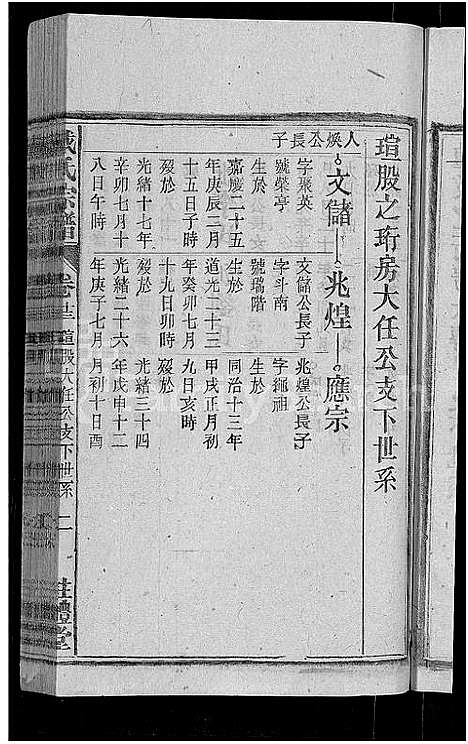 瑄股之珩房大任公支下世系
人煥公長子
文儲
兆煌
應宗
字聚英
號榮亭
生於
嘉慶二十五
年庚辰三月
十五日子時
歿於
光緒十七年
辛卯七月十
八日午時
文儲公長子
字斗南
號瑞階
生於
道光二十三
年癸卯七月
十九日卯時
歿於
光緒二十六
年庚子七月
兆煌公長子
字繩祖
生於
同治十三年
甲戌正月初
九日亥時
歿於
光緒三十四
年戊申十二
月初十日酉
氏宗譜
卷十三 瑄股大任公支下世系
二
禮堂